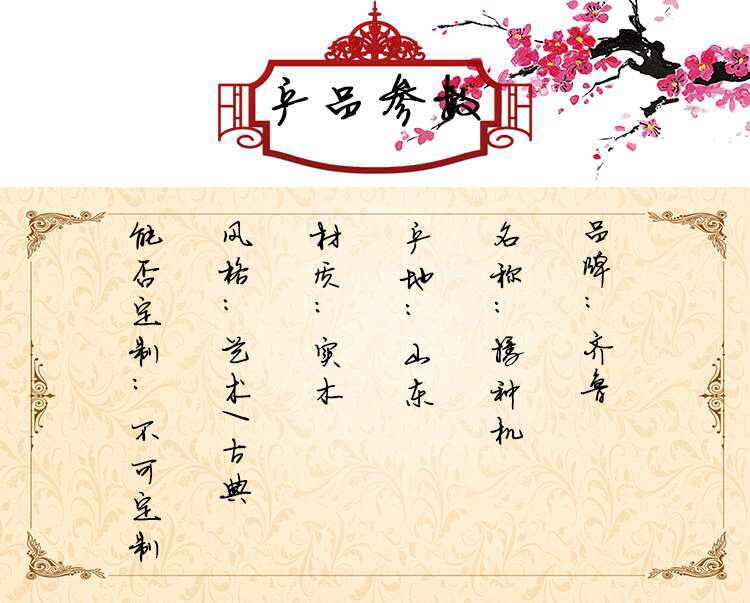 产品参数
品牌：齐鲁
名称：播种机
产地：山东
材质：实木
风格：艺术/古典
能否定制：不可定制